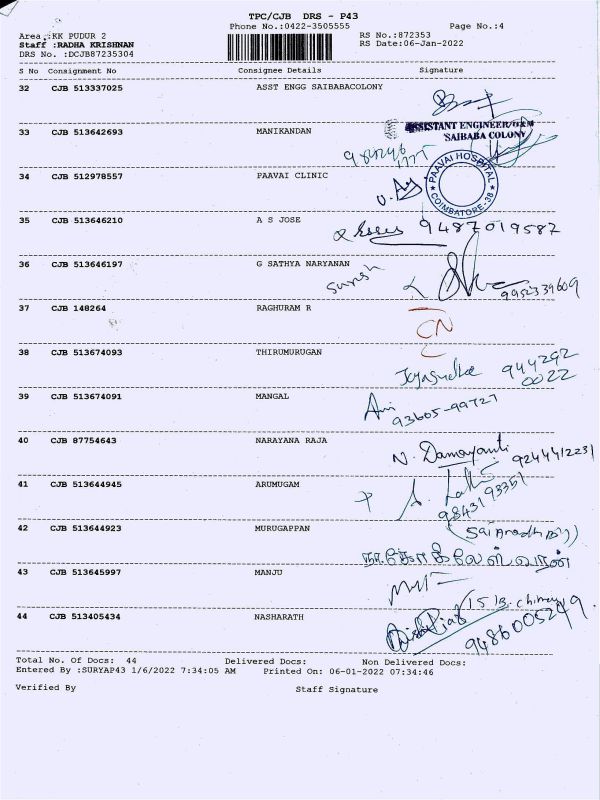 TPC/CJB DRS - P43
Phone No.:0422-3505555 Page No.:4
Area :KK PUDUR 2 RS No.:872353
Staff :RADHA KRISHNAN RS Date:06-Jan-2022
DRS No. :DCJB87235304
S No Consignment No Consignee Details Signature
32 CJB 513337025 ASST ENGG SAIBABACOLONY
ASSISTANT ENGINEER/O&M
SAIBABA COLONY
33 CJB 513642693 MANIKANDAN
34 CJB 512978557 PAAVAI CLINIC
PAAVAI HOSPITAL
COIMBATORE-38
35 CJB 513646210 A S JOSE
9487019587
36 CJB 513646197 G SATHYA NARYANAN
Suresh
9952339609
37 CJB 148264 RAGHURAM R
CN
38 CJB 513674093 THIRUMURUGAN
Jeyasudha 944292
0022
39 CJB 513674091 MANGAL
93605-99727
40 CJB 87754643 NARAYANA RAJA
N. Damayanti 9244412231
41 CJB 513644945 ARUMUGAM
9843193351
42 CJB 513644923 MURUGAPPAN
43 CJB 513645997 MANJU
44 CJB 513405434 NASHARATH
9486005249
Total No. Of Docs: 44 Delivered Docs: Non Delivered Docs:
Entered By :SURYAP43 1/6/2022 7:34:05 AM Printed On: 06-01-2022 07:34:46
Verified By Staff Signature